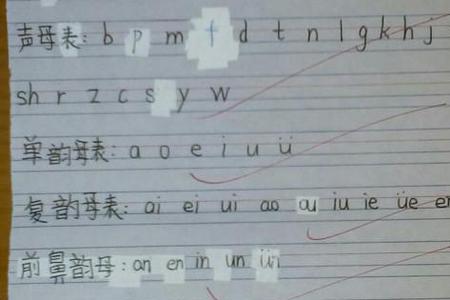 声母表: b p m f d t n l g k h j
sh r z c s y w
单韵母表: a o e i u ü
复韵母表: ai ei ui ao ou iu ie üe er
前鼻韵母: an en in un ün